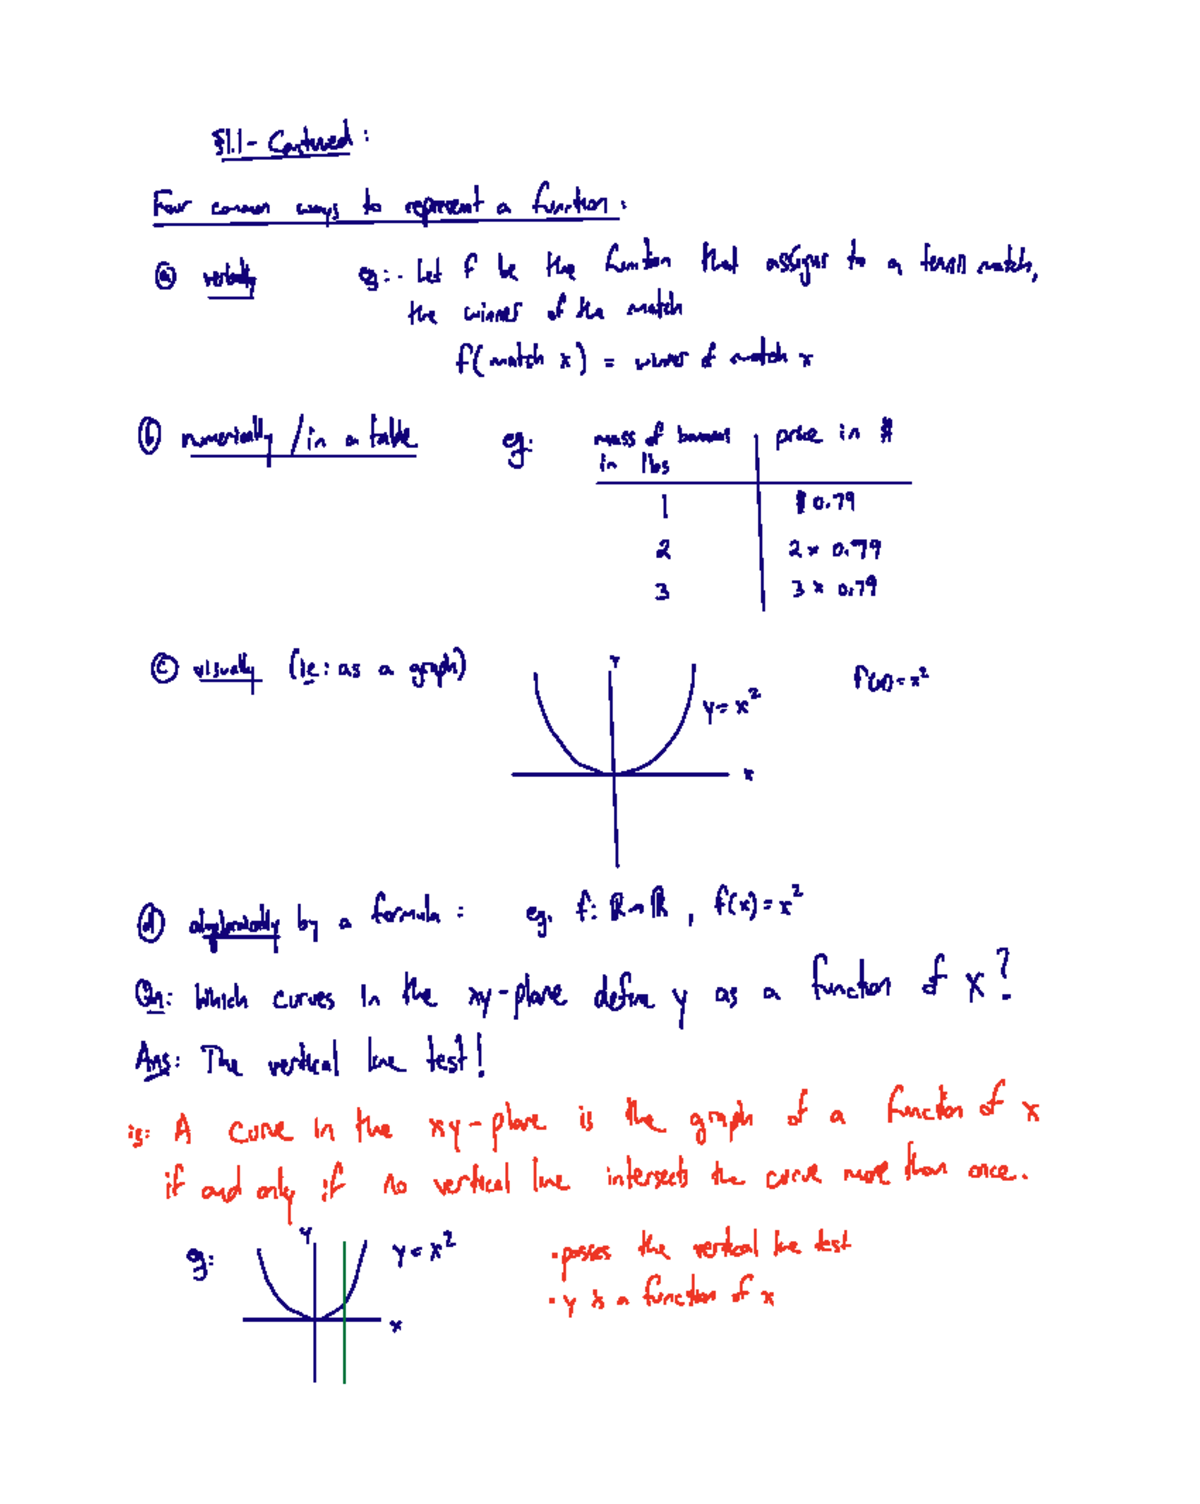 §1.1 - Continued:
Four common ways to represent a function:
ⓐ verbally eg: · Let f be the function that assigns to a tennis match,
the winner of the match
f(match x) = winner of match x
ⓑ numerically / in a table eg: mass of bananas in lbs | price in $
1 | $0.79
2 | 2 × 0.79
3 | 3 × 0.79
ⓒ visually (ie: as a graph) y y = x² x f(x) = x²
ⓓ algebraically by a formula: eg. f: ℝ → ℝ, f(x) = x²
Qn: Which curves in the xy-plane define y as a function of x?
Ans: The vertical line test!
ie: A curve in the xy-plane is the graph of a function of x
if and only if no vertical line intersects the curve more than once.
eg: y y = x² x
· passes the vertical line test
· y is a function of x